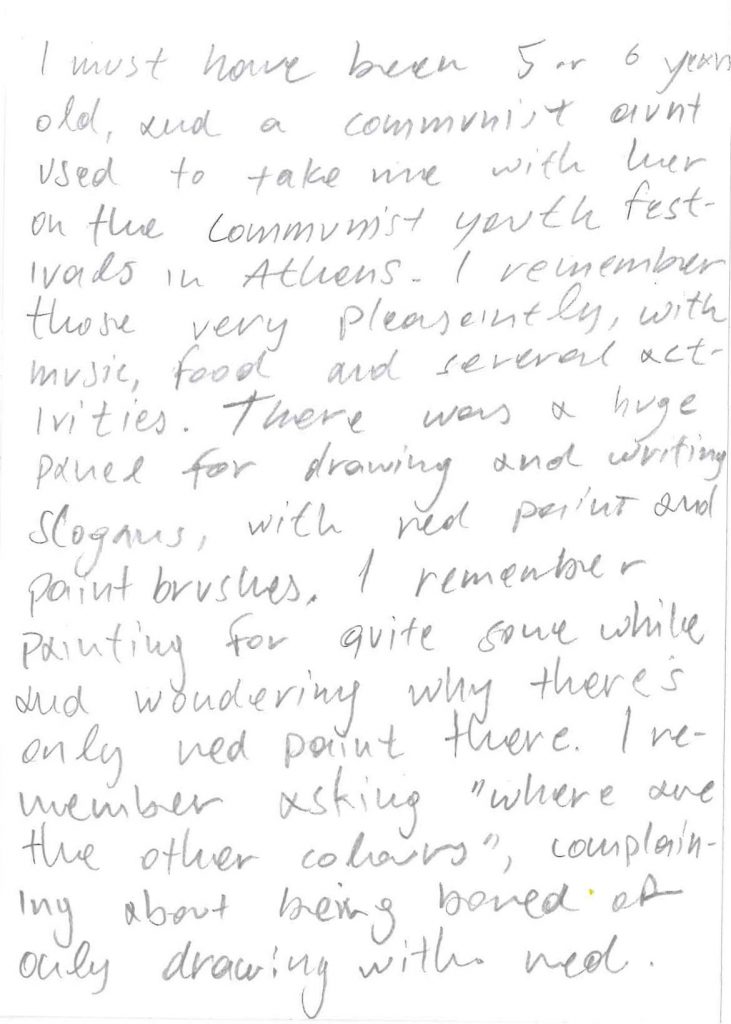 I must have been 5 or 6 years
old, and a communist aunt
used to take me with her
on the communist youth fest-
ivals in Athens. I remember
those very pleaseintly, with
music, food and several act-
ivities. There was a huge
panel for drawing and writing
slogans, with red paint and
paint brushes. I remember
painting for quite some while
and wondering why there's
only red paint there. I re-
member asking "where are
the other colours", complain-
ing about being bored of
only drawing with red.